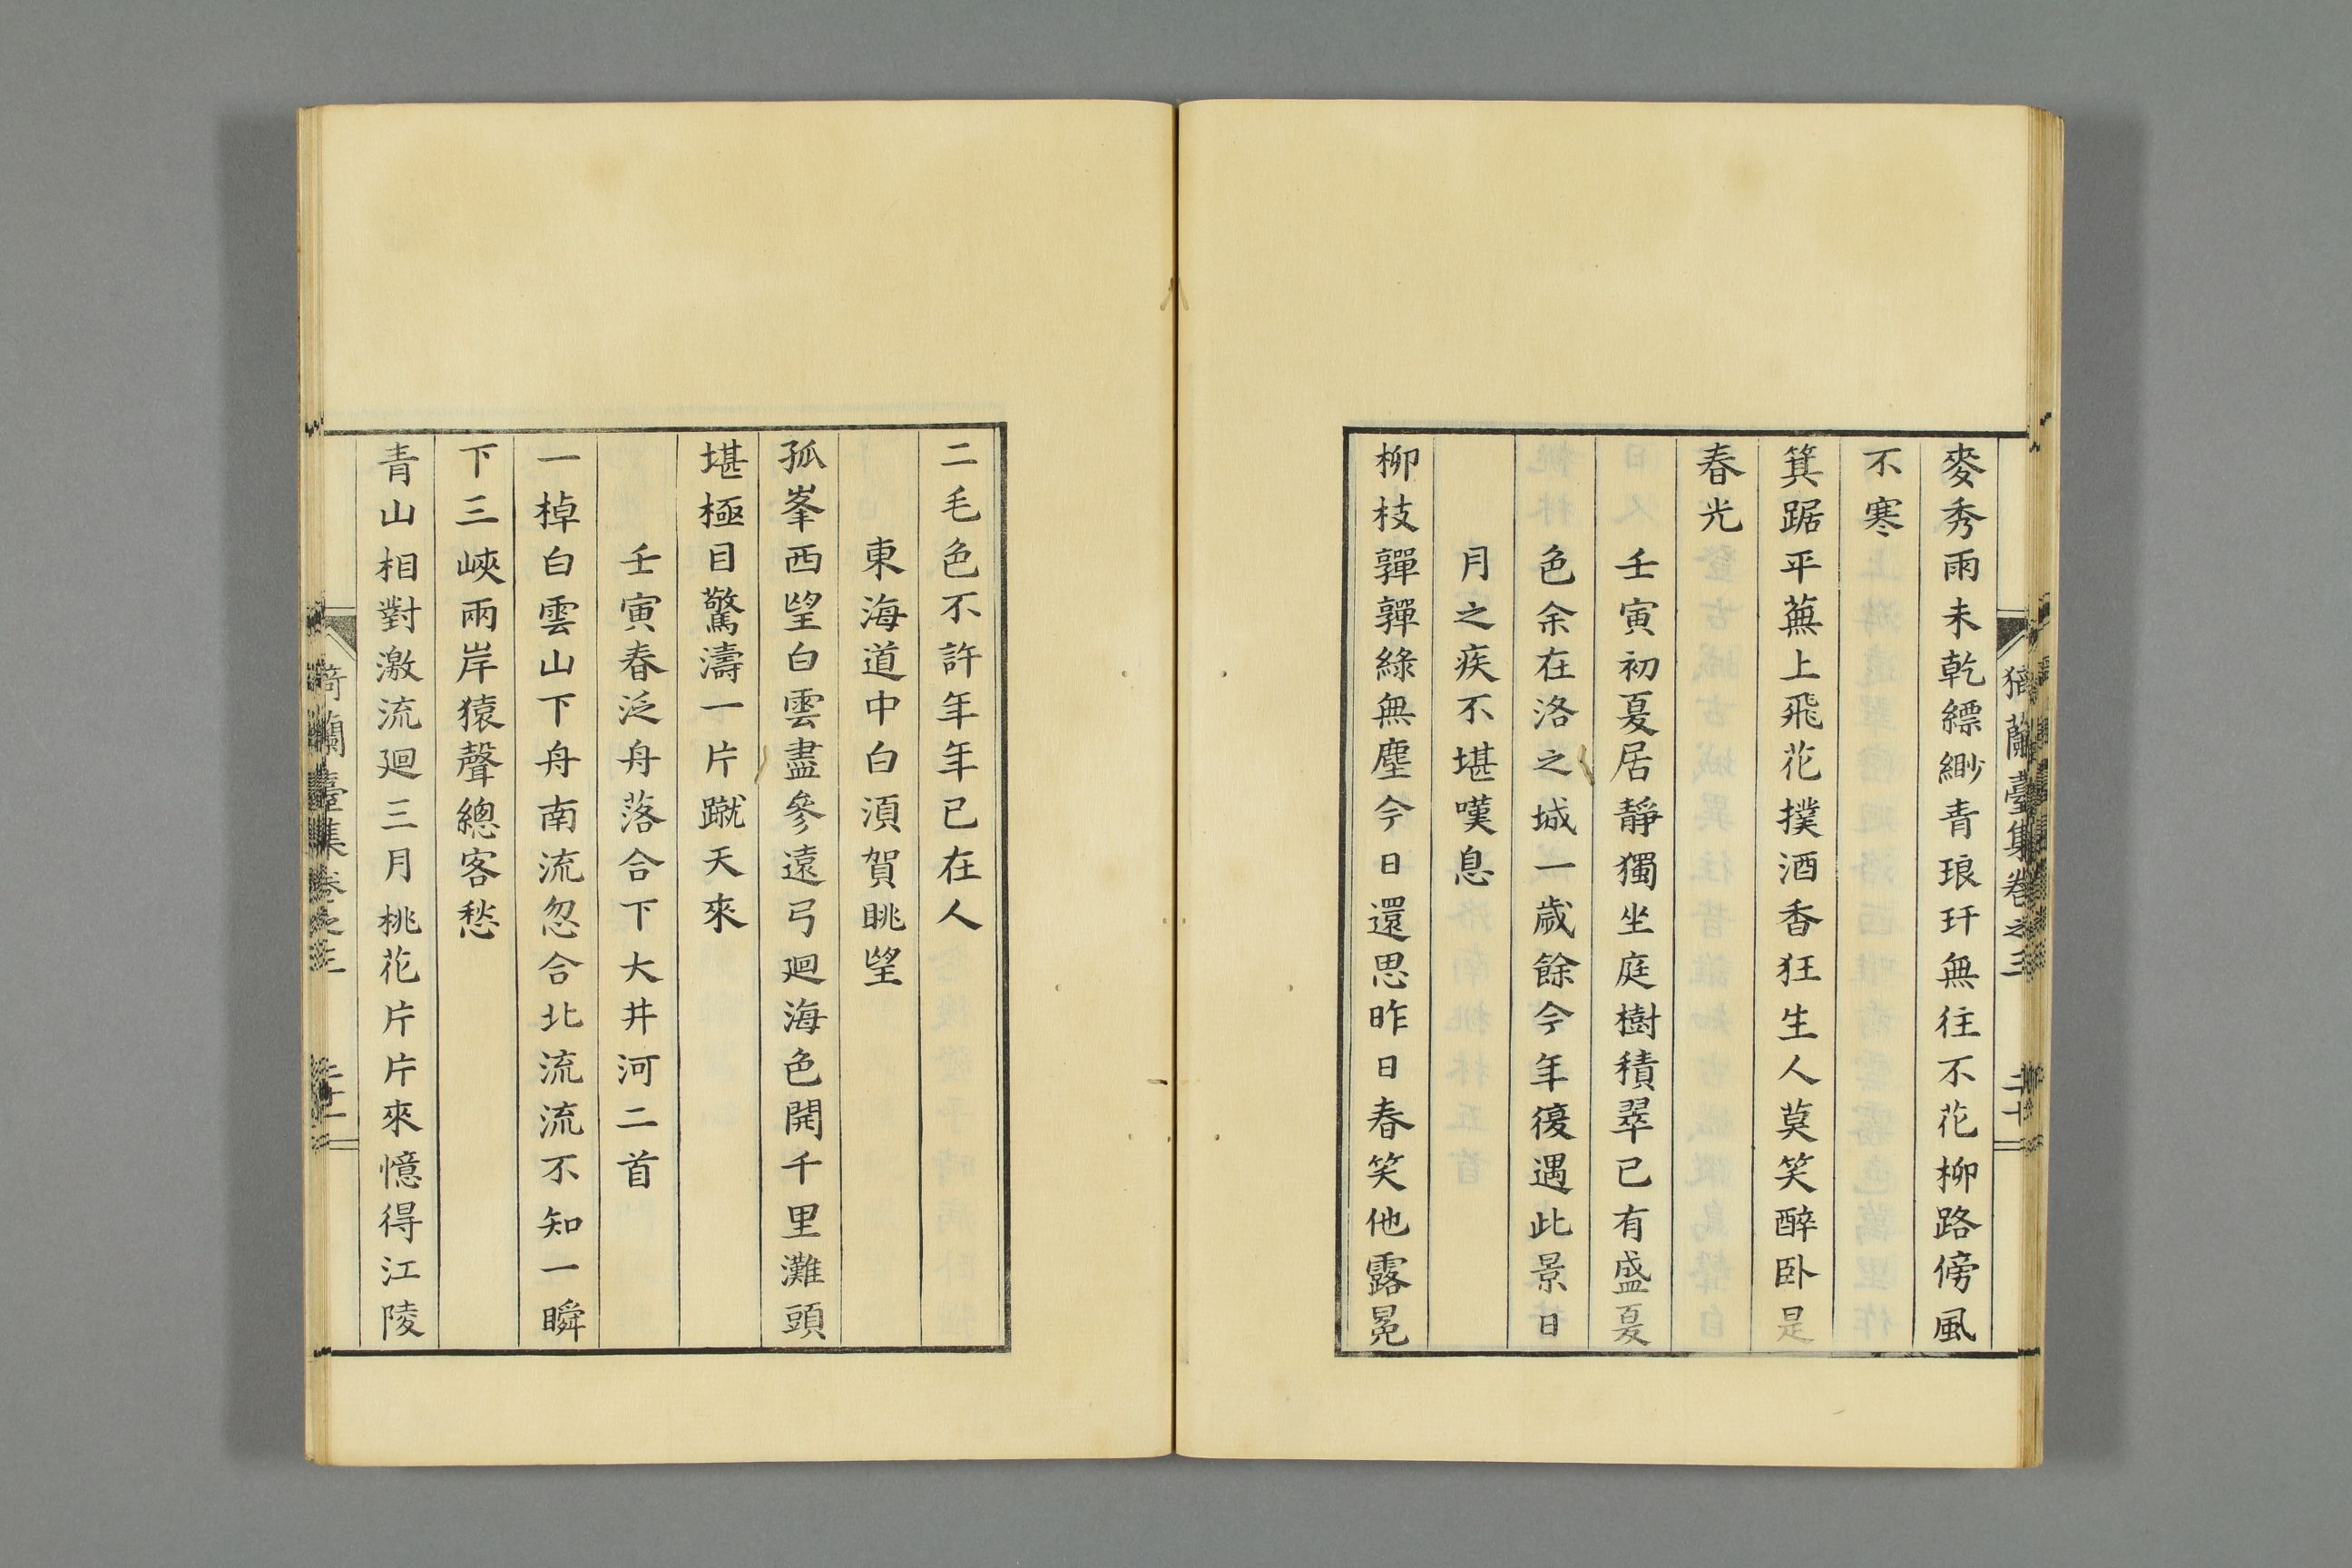 猗蘭臺集卷之三 二十
麥秀雨未乾縹緲青琅玕無往不花柳路傍風
不寒
箕踞平蕪上飛花撲酒香狂生人莫笑醉卧是
春光
壬寅初夏居靜獨坐庭樹積翠已有盛夏
色余在洛之城一歳餘今年復遇此景日
月之疾不堪嘆息
柳枝嚲嚲綠無塵今日還思昨日春笑他露冕
二毛色不許年年已在人
東海道中白湏賀眺望
孤峯西望白雲盡參遠弓廻海色開千里灘頭
堪極目驚濤一片蹴天來
壬寅春泛舟落合下大井河二首
一棹白雲山下舟南流忽合北流流不知一瞬
下三峽兩岸猿聲總客愁
青山相對激流廻三月桃花片片來憶得江陵
猗蘭臺集卷之三